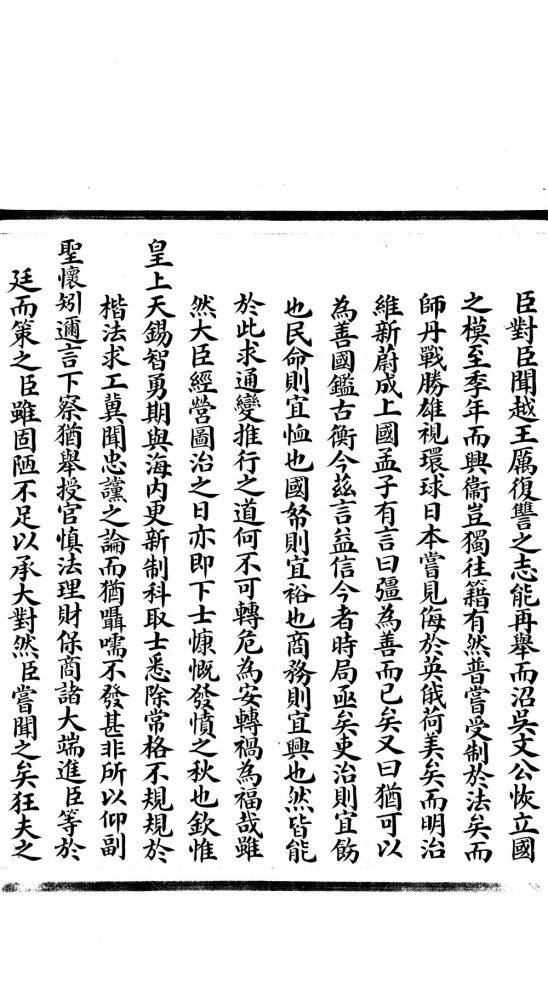 臣對臣聞越王厲復讐之志能再舉而沼吳文公恢立國
之模至季年而興衞豈獨往籍有然普嘗受制於法矣而
師丹戰勝雄視環球日本嘗見侮於英俄荷美矣而明治
維新蔚成上國孟子有言曰彊為善而已矣又曰猶可以
為善國鑑古衡今茲言益信今者時局亟矣吏治則宜飭
也民命則宜恤也國帑則宜裕也商務則宜興也然皆能
於此求通變推行之道何不可轉危為安轉禍為福哉雖
然大臣經營圖治之日亦即下士慷慨發憤之秋也欽惟
皇上天錫智勇期與海内更新制科取士悉除常格不規規於
楷法求工冀聞忠讜之論而猶囁嚅不發甚非所以仰副
聖懷矧邇言下察猶舉授官慎法理財保商諸大端進臣等於
廷而策之臣雖固陋不足以承大對然臣嘗聞之矣狂夫之